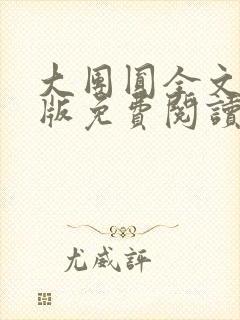 大團圓全文
版免費閱讀
尤威評